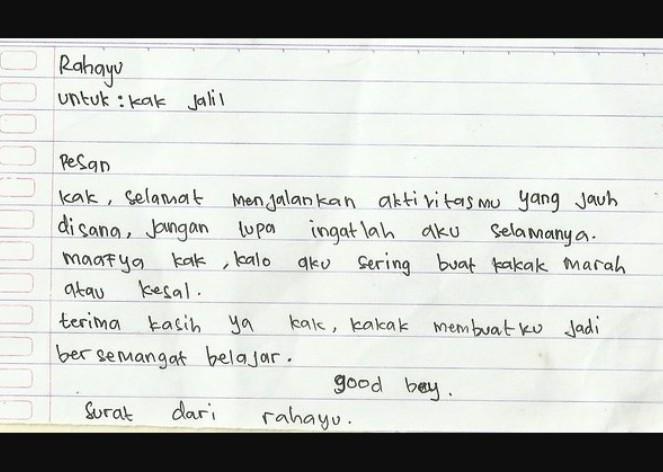 Rahayu
untuk : kak Jalil
Pesan
kak, selamat menjalankan aktivitasmu yang Jauh
disana, Jangan lupa ingatlah aku selamanya.
maafya kak, kalo aku sering buat kakak marah
atau kesal.
terima kasih ya kak, kakak membuatku Jadi
bersemangat belajar.
good bey.
Surat dari rahayu.